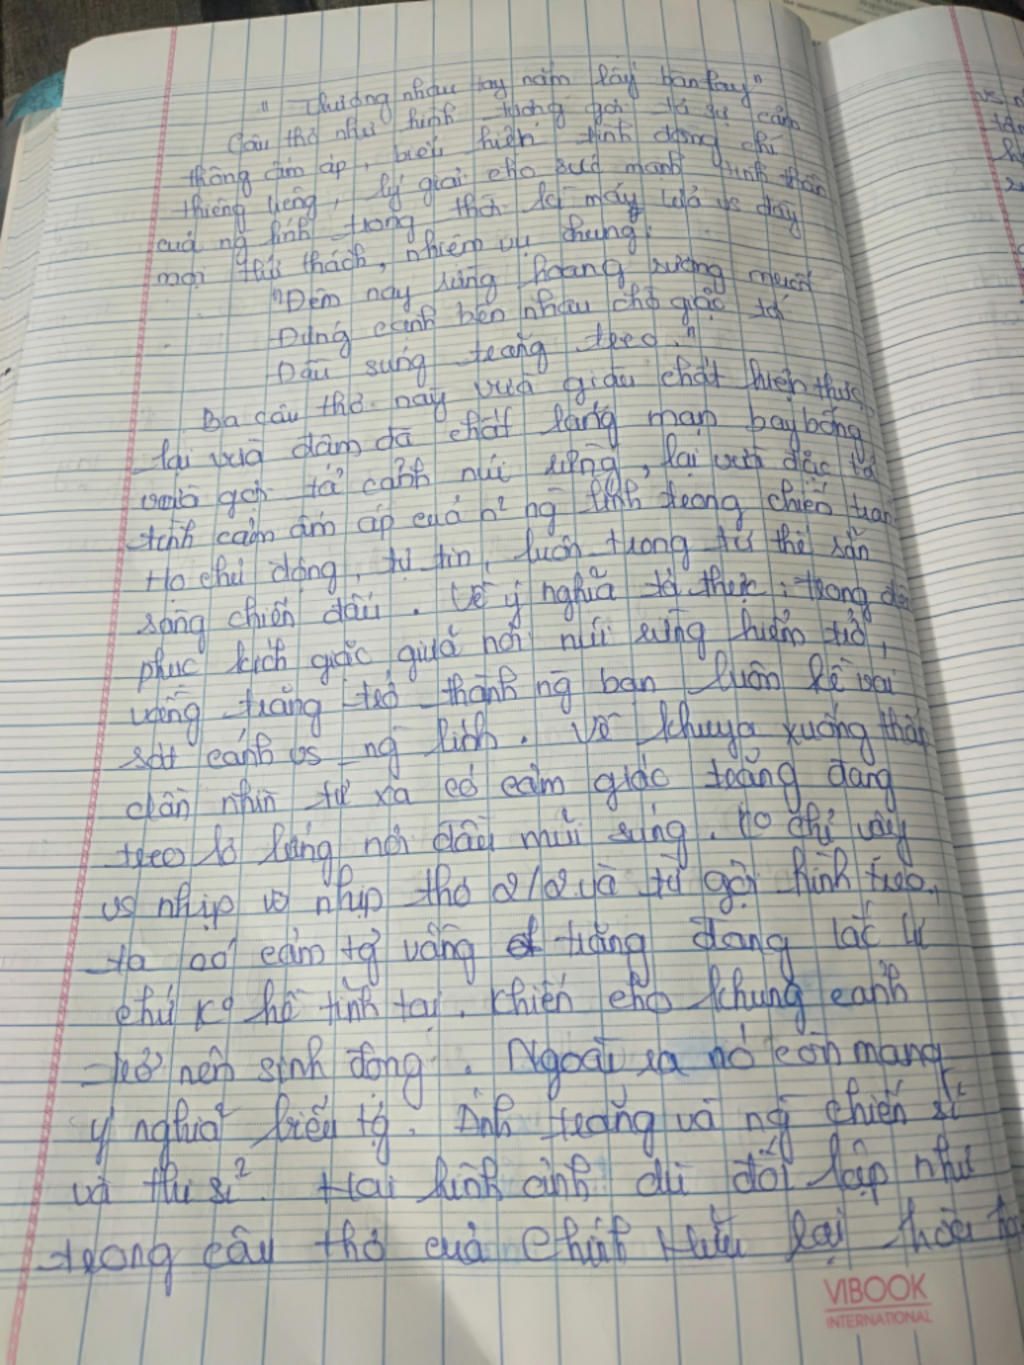 "Thương nhau tay nắm lấy bàn tay"
Câu thơ như hình tượng gợi tả sự cảm
thông ấm áp, biểu hiện tình đồng chí
thiêng liêng, lý giải cho sức mạnh tinh thần
của ng lính trong thời kì máy lửa vs đầy
mọi thử thách, nhiệm vụ chung.
"Đêm nay rừng hoang sương muối
Đứng cạnh bên nhau chờ giặc tới
Đầu súng trăng treo."
Ba câu thơ này vừa giàu chất hiện thực,
lại vừa đậm đà chất lãng mạn bay bổng
vừa gợi tả cảnh núi rừng, lại vừa đặc tả
tình cảm ấm áp của n² ng lính trong chiến tran
Họ chủ động, tự tin, luôn trong tư thế sẵn
sàng chiến đấu. Về ý nghĩa tả thực: trong đê
phục kích giặc giữa nơi núi rừng hiểm trở,
vầng trăng trở thành ng bạn luôn kề vai
sát cánh vs ng lính. Về khuya xuống thấp
dần nhìn từ xa có cảm giác trăng đang
treo lơ lửng nơi đầu mũi súng. Ko chỉ vậy
vs nhịp nhịp thơ 2/2 và từ gợi hình treo,
ta có cảm tg vầng trăng đang lắc lư
chứ ko hề tĩnh tại. Khiến cho khung cảnh
trở nên sinh động. Ngoài ra nó còn mang
ý nghĩa biểu tg. Ánh trăng và ng chiến sĩ
và thi sĩ. Hai hình ảnh dù đối lập như
trong câu thơ của Chính Hữu lại
VIBOOK
INTERNATIONAL